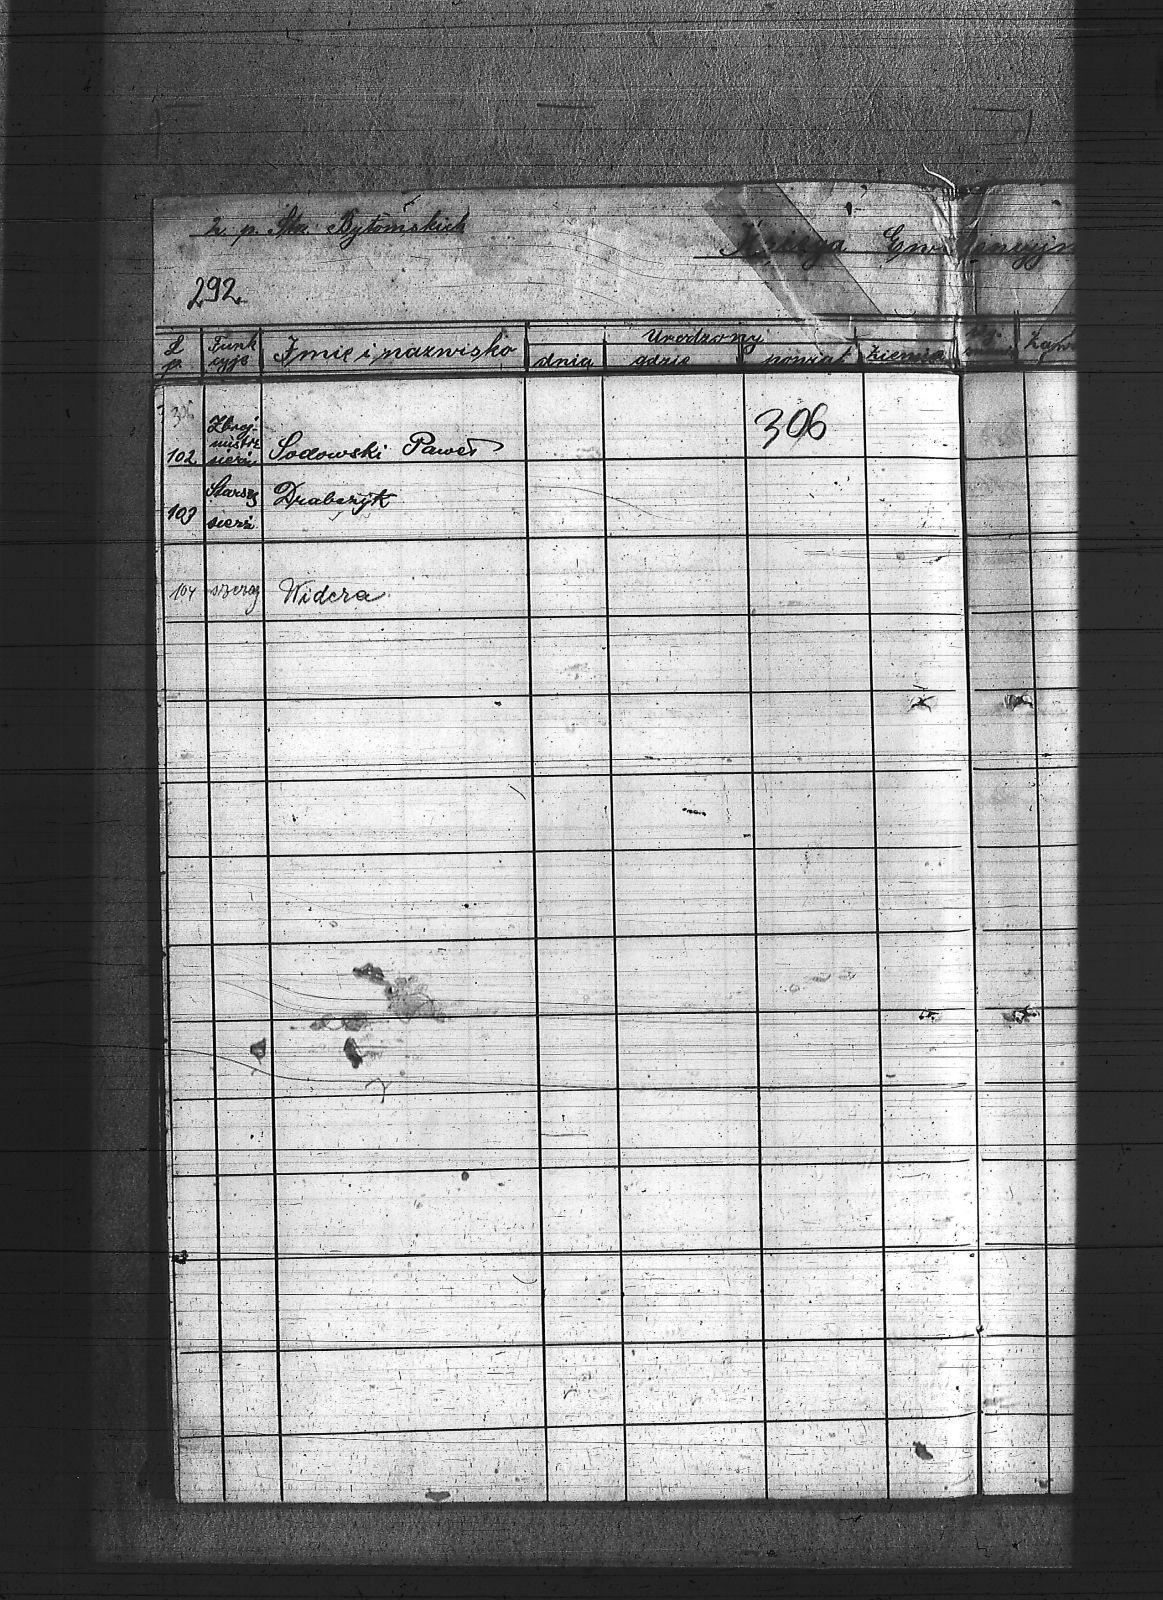 2. p. Strz. Bytomskich
Księga Ewidencyjn
292
L p. Funk cyje Imię i nazwisko Urodzony
dnia gdzie powiat ziemia
306
306
102 Zbroj- mistrz sierż. Sodowski Paweł
103 Starszy sierż. Drabczyk
104 szereg Widera